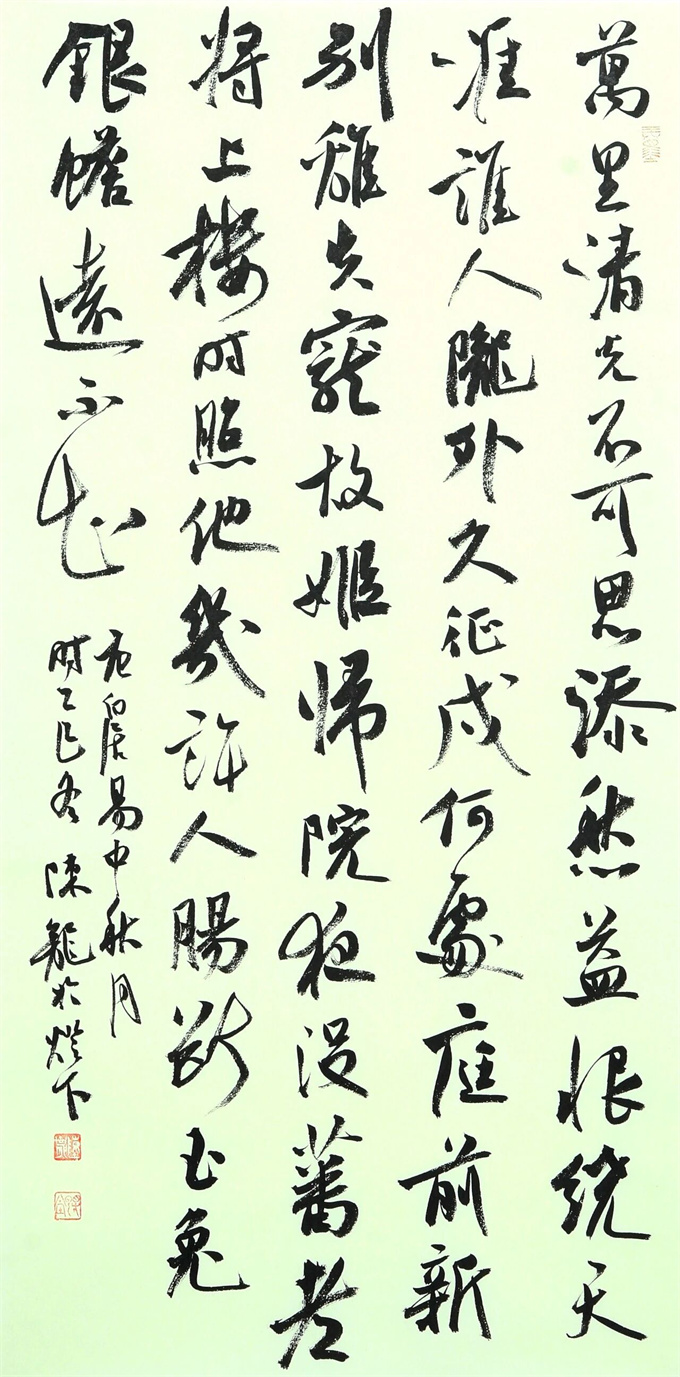 萬里清光不可思添愁益恨繞天
涯誰人隴外久征戍何處庭前新
別離失寵故姬歸院夜沒蕃老
將上樓時照他幾許人腸斷玉兔
銀蟾遠不知
右白居易中秋月
時乙巳冬 陳龍於燈下